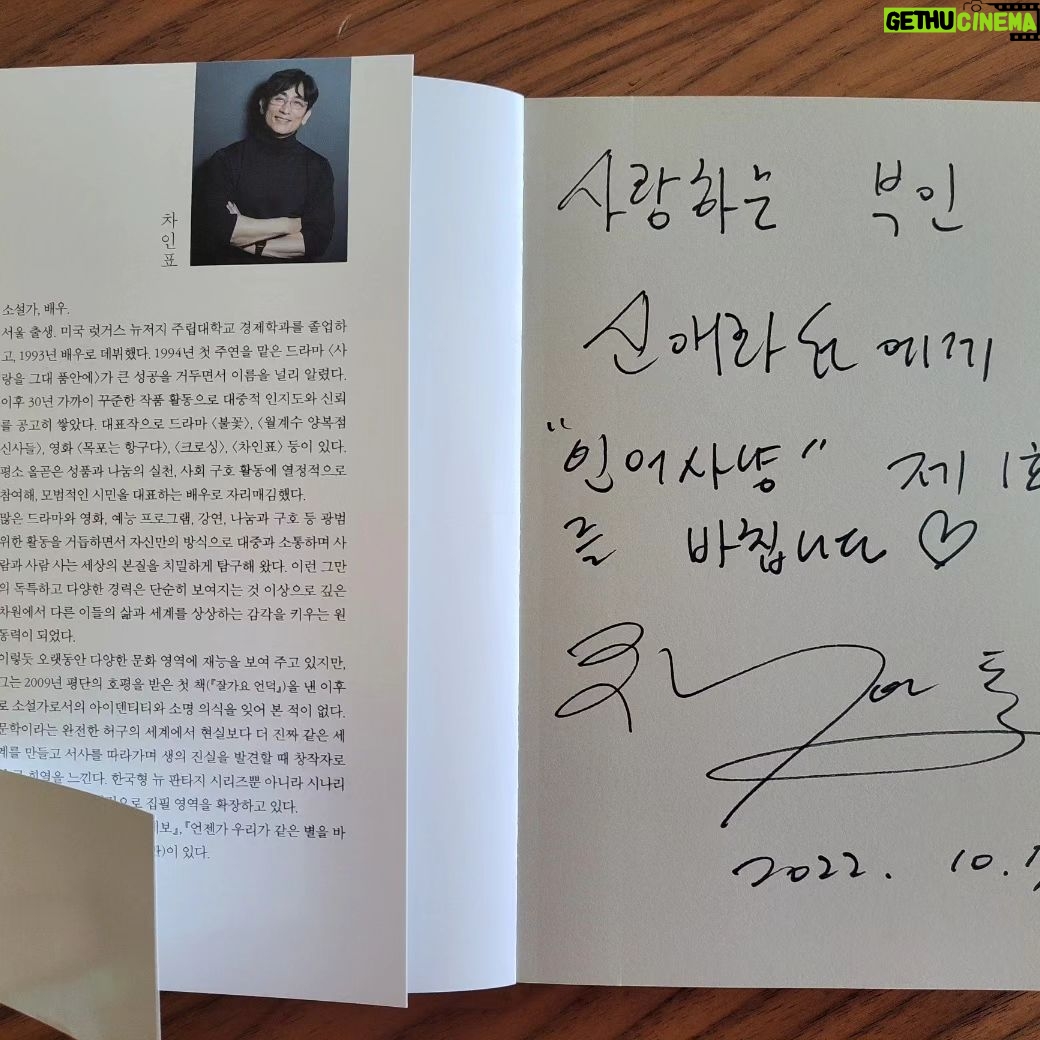 GETHUCINEMA
차인표
소설가, 배우.
서울 출생. 미국 럿거스 뉴저지 주립대학교 경제학과를 졸업하
고, 1993년 배우로 데뷔했다. 1994년 첫 주연을 맡은 드라마 〈사
랑을 그대 품안에〉가 큰 성공을 거두면서 이름을 널리 알렸다.
이후 30년 가까이 꾸준한 작품 활동으로 대중적 인지도와 신뢰
를 공고히 쌓았다. 대표작으로 드라마 〈불꽃〉, 〈월계수 양복점
신사들〉, 영화 〈목포는 항구다〉, 〈크로싱〉, 〈차인표〉 등이 있다.
평소 올곧은 성품과 나눔의 실천, 사회 구호 활동에 열정적으로
참여해, 모범적인 시민을 대표하는 배우로 자리매김했다.
많은 드라마와 영화, 예능 프로그램, 강연, 나눔과 구호 등 광범
위한 활동을 거듭하면서 자신만의 방식으로 대중과 소통하며 사
람과 사람 사는 세상의 본질을 치밀하게 탐구해 왔다. 이런 그만
의 독특하고 다양한 경력은 단순히 보여지는 것 이상으로 깊은
차원에서 다른 이들의 삶과 세계를 상상하는 감각을 키우는 원
동력이 되었다.
이렇듯 오랫동안 다양한 문화 영역에 재능을 보여 주고 있지만,
그는 2009년 평단의 호평을 받은 첫 책(『잘가요 언덕』)을 낸 이후
로 소설가로서의 아이덴티티와 소명 의식을 잊어 본 적이 없다.
문학이라는 완전한 허구의 세계에서 현실보다 더 진짜 같은 세
계를 만들고 서사를 따라가며 생의 진실을 발견할 때 창작자로
희열을 느낀다. 한국형 뉴 판타지 시리즈뿐 아니라 시나리
으로 집필 영역을 확장하고 있다.
『언젠가 우리가 같은 별을 바
이 있다.
사랑하는 부인
신애라 에게
"인어사냥" 제 1호
를 바칩니다 ♡
2022. 10.